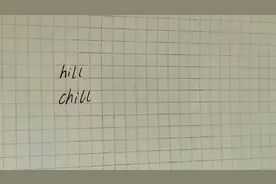 hill
chill